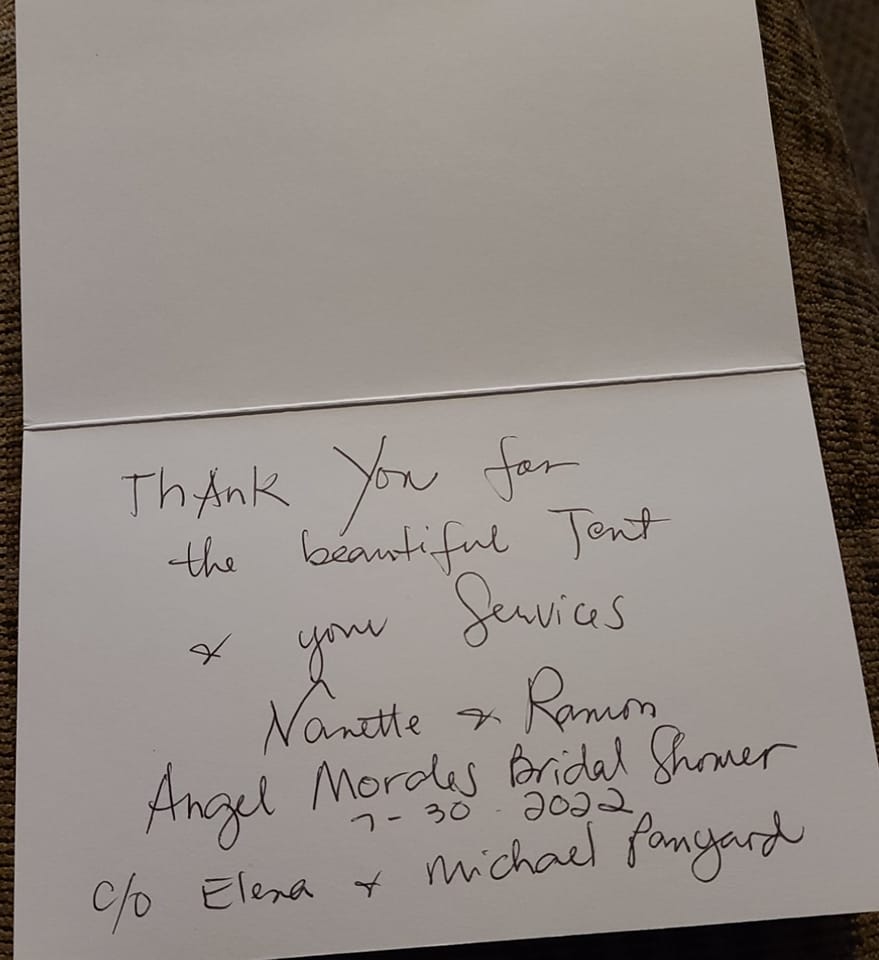 Thank You for
the beautiful Tent
& your Services
Nanette & Ramon
Angel Morales Bridal Shower
7-30-2022
c/o Elena & Michael Panyard